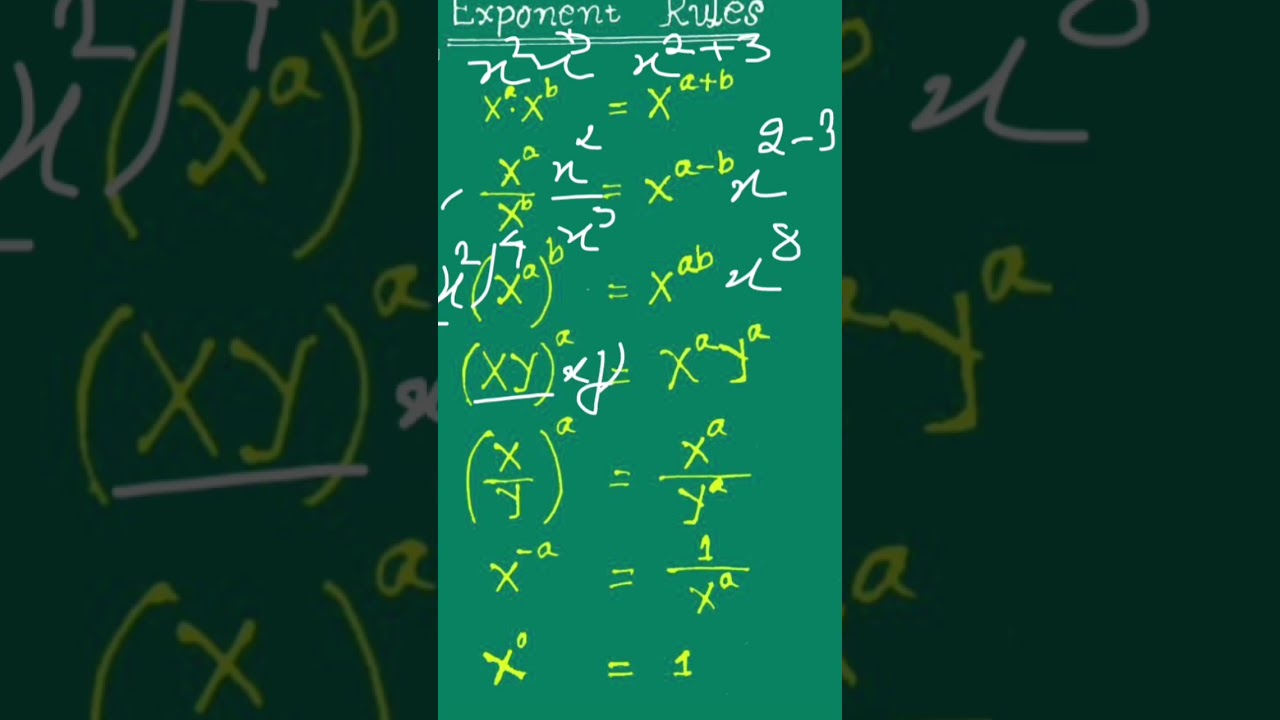 Exponent Rules
x² x³ x²⁺³
xᵃ · xᵇ = xᵃ⁺ᵇ
xᵃ/xᵇ x²/x³ = xᵃ⁻ᵇ x²⁻³
x²)⁴ (xᵃ)ᵇ = xᵃᵇ x⁸
(xy)ᵃ xy = xᵃyᵃ
(x/y)ᵃ = xᵃ/yᵃ
x⁻ᵃ = 1/xᵃ
x⁰ = 1